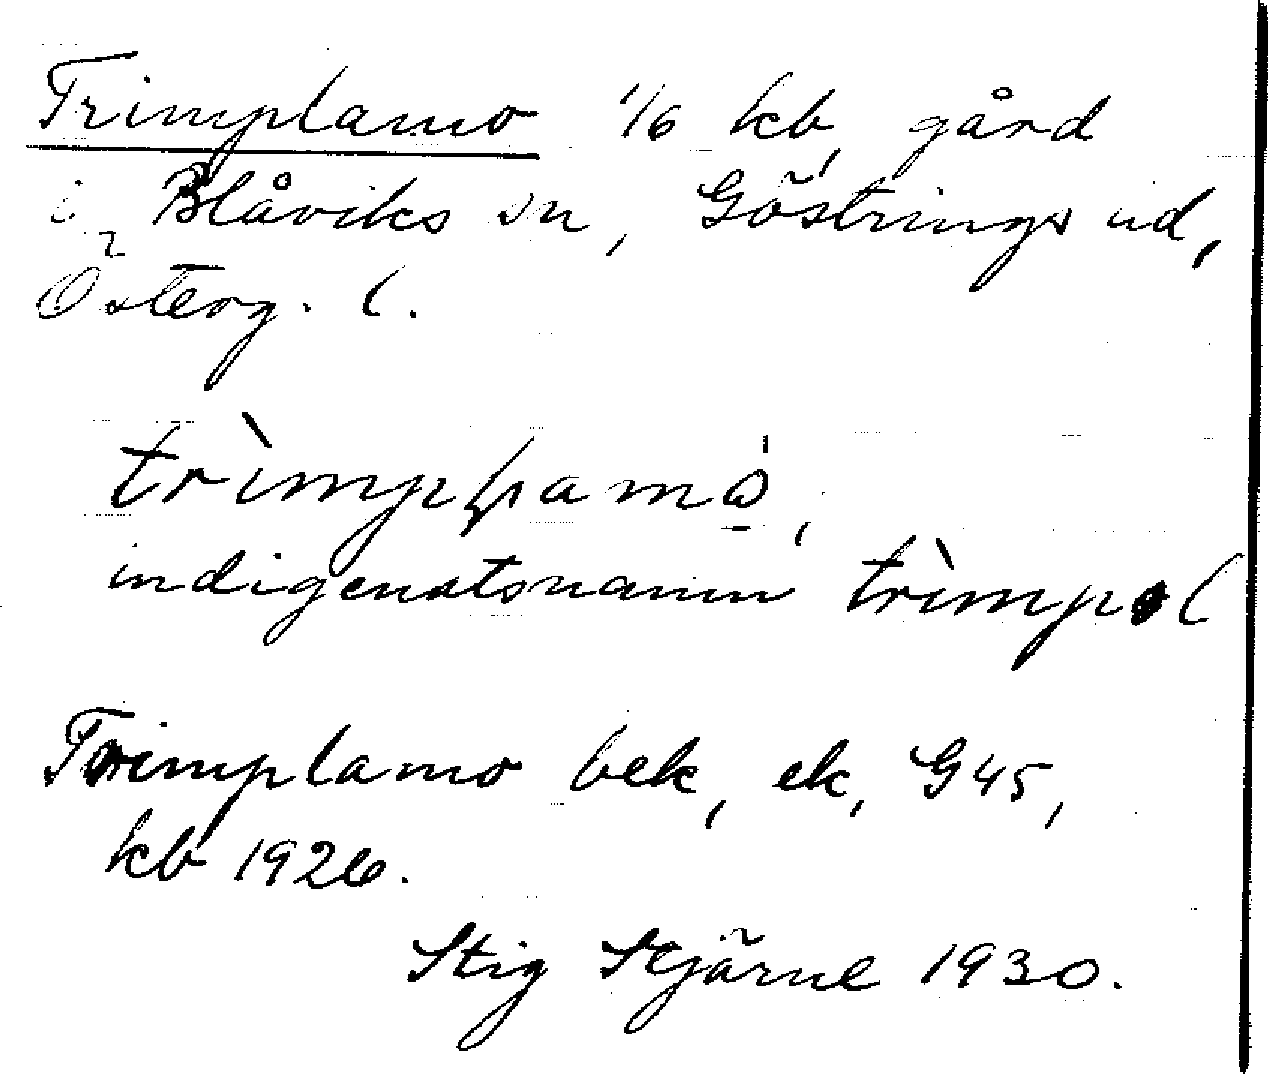 Trimplamo 1/6 kb, gård
i Blåviks sn, Göstrings hd,
Österg. l.
indigenatsnamn trìmpəl
Trimplamo bek, ek, G45,
kb 1926.
Stig Stjärne 1930.